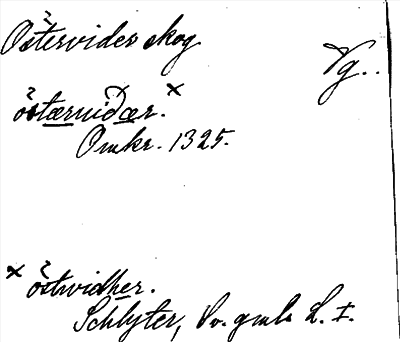 Östervider skog
Vg..
östærviðær. x
Omkr. 1325.
x östvidher.
Schlyter, Sv. gmla L. I.